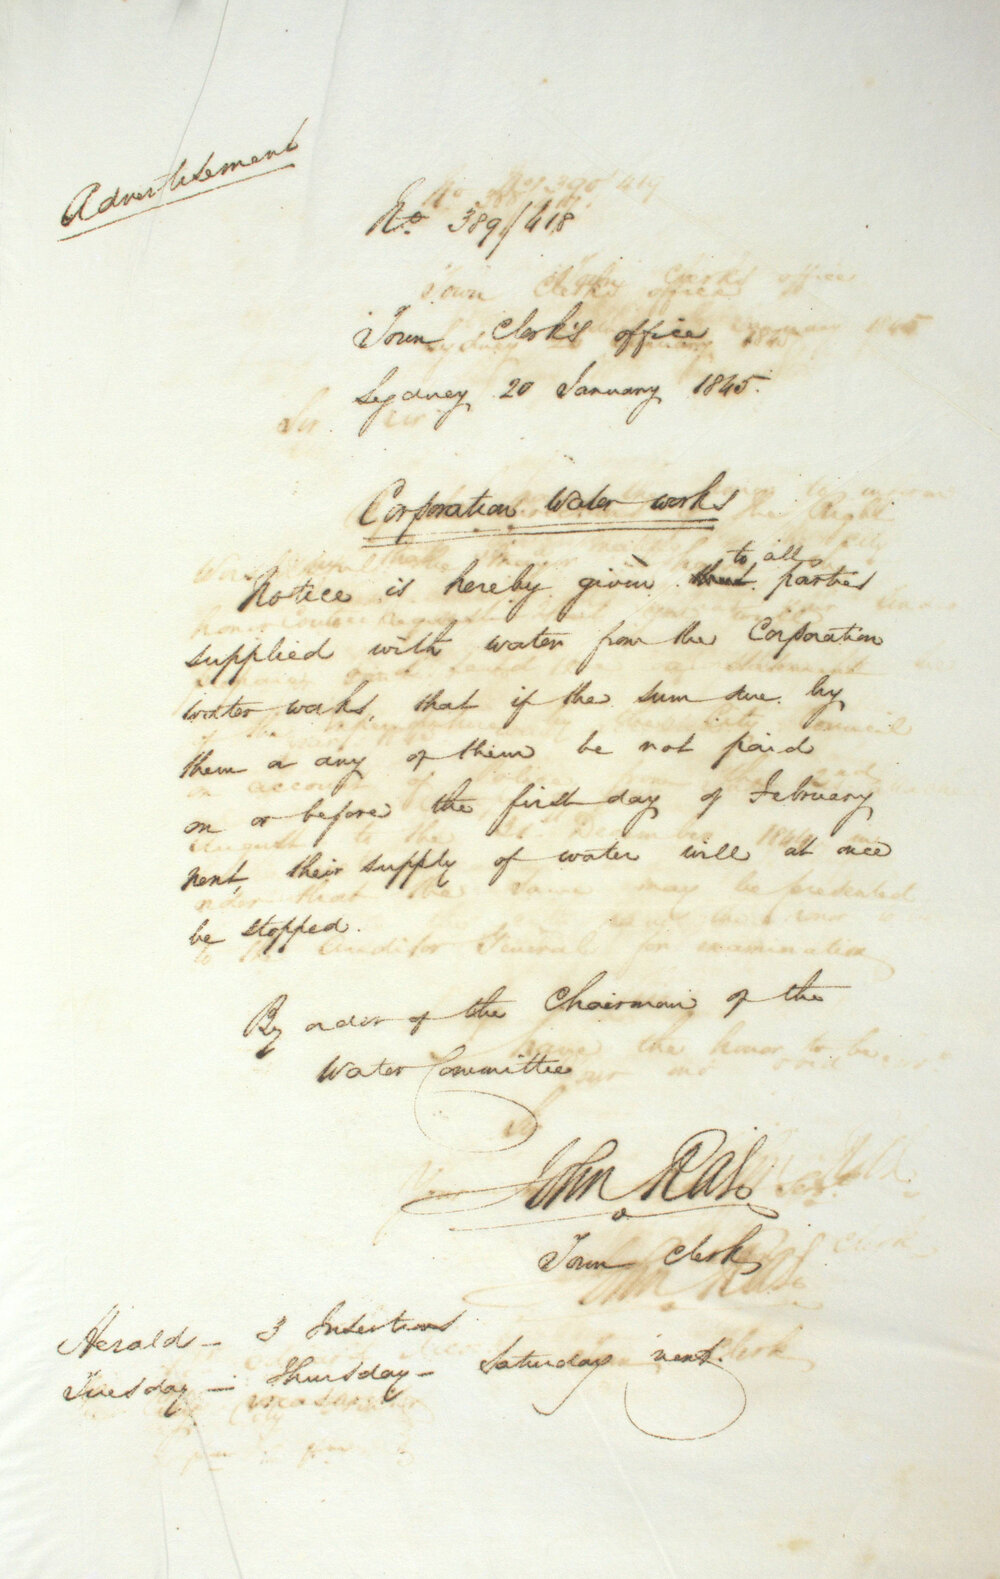 Advertisement
No. 389/418
Town Clerk's office
Sydney 20 January 1845.
Corporation Water works
to all
Notice is hereby given that parties
supplied with water from the Corporation
water works, that if the sum due by
them or any of them be not paid
on or before the first day of February
next, their supply of water will at once
be stopped.
By order of the Chairman of the
Water Committee
John Rae
Town Clerk
Herald - 3 Insertions
Tuesday - Thursday - Saturday next.